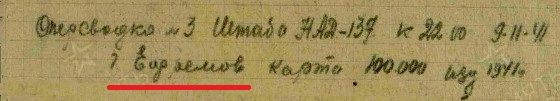 Оперсводка № 3 Штаба НАД-137 к 22 00 9-11-41
? Евдоемов карта 100.000 изд 1941г